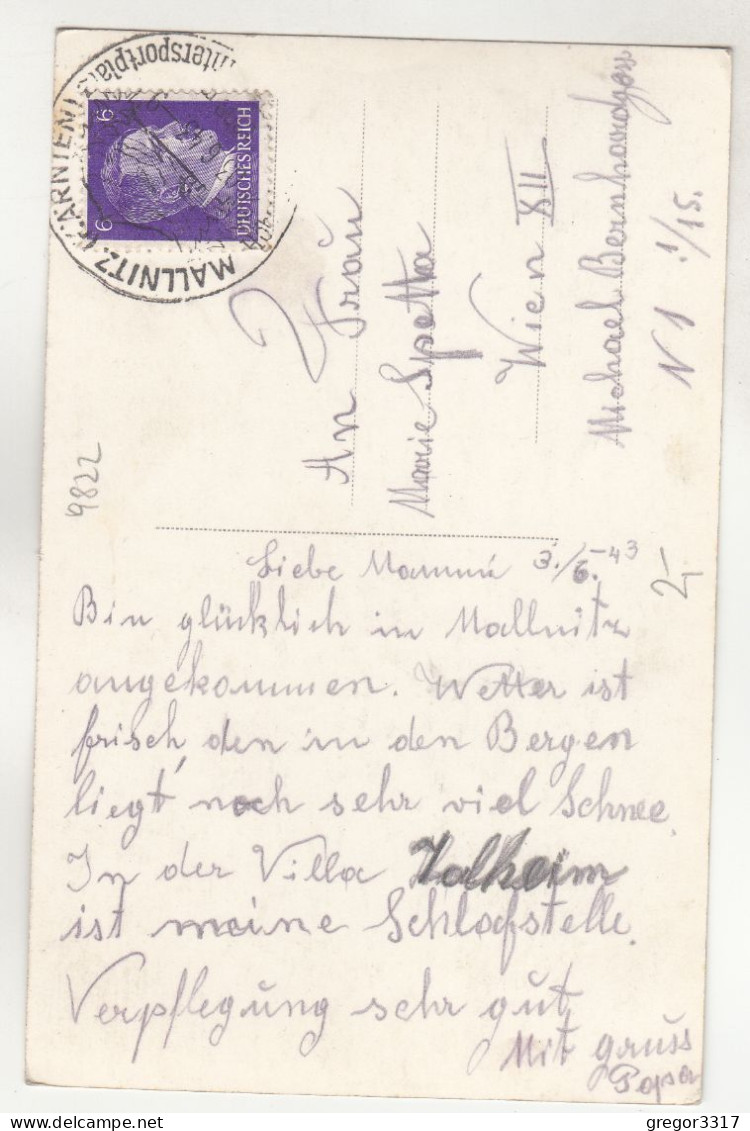 MALLNITZ (KÄRNTEN)
Wintersportplatz
6
6
DEUTSCHES REICH
An Frau
Marie Spetta
Wien XII
Michael Bernhardgasse
N 1 1/15.
9822
2,-
3./6.-43
Liebe Mammi
Bin glücklich in Mallnitz
angekommen. Wetter ist
frisch, den in den Bergen
liegt noch sehr viel Schnee.
In der Villa
ist meine Schlafstelle.
Verpflegung sehr gut
Mit gruss
Papa
gregor3317